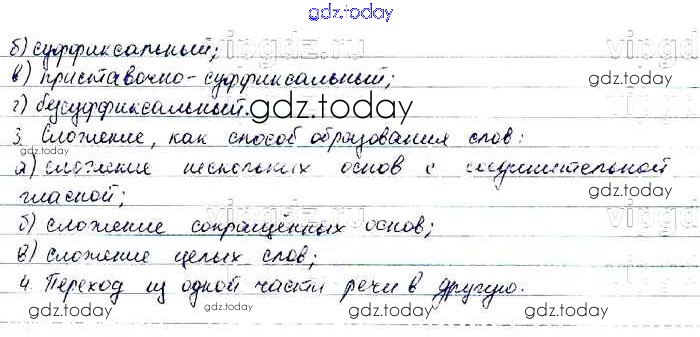 gdz.today
б) суффиксальный;
в) приставочно-суффиксальный;
г) бессуффиксальный.
gdz.today
3. Сложение, как способ образования слов:
gdz.today
а) сложение нескольких основ с соединительной
гласной;
б) сложение сокращённых основ;
в) сложение целых слов;
4. Переход из одной части речи в другую.
gdz.today gdz.today gdz.today